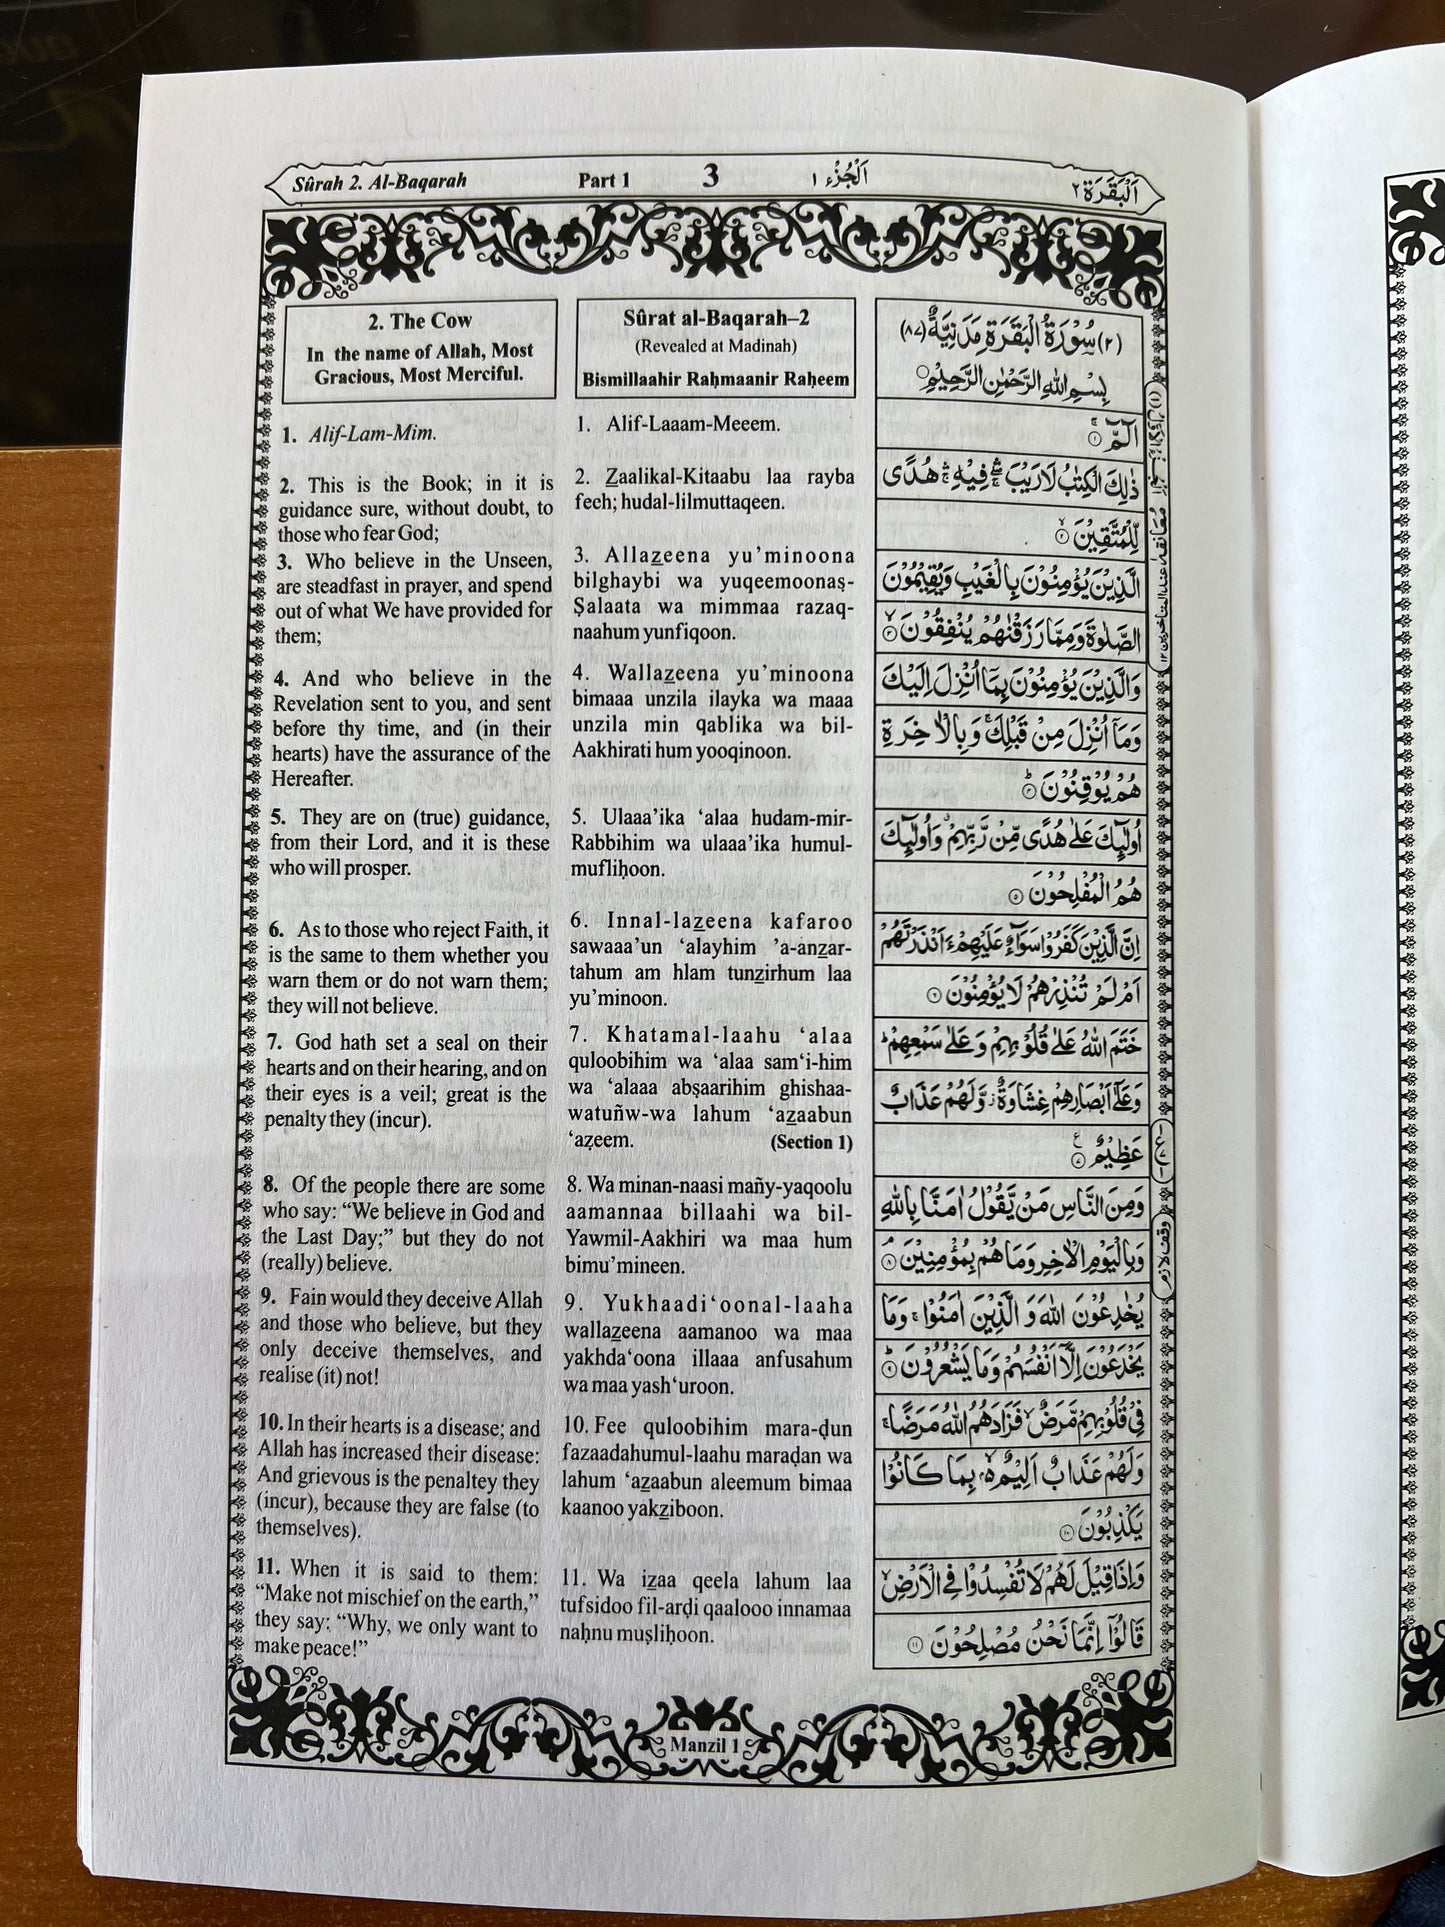 Sûrah 2. Al-Baqarah
Part 1
3
اَلْجُزْء ١
اَلْبَقَرَة ٢
2. The Cow
In the name of Allah, Most
Gracious, Most Merciful.
1. Alif-Lam-Mim.
2. This is the Book; in it is
guidance sure, without doubt, to
those who fear God;
3. Who believe in the Unseen,
are steadfast in prayer, and spend
out of what We have provided for
them;
4. And who believe in the
Revelation sent to you, and sent
before thy time, and (in their
hearts) have the assurance of the
Hereafter.
5. They are on (true) guidance,
from their Lord, and it is these
who will prosper.
6. As to those who reject Faith, it
is the same to them whether you
warn them or do not warn them;
they will not believe.
7. God hath set a seal on their
hearts and on their hearing, and on
their eyes is a veil; great is the
penalty they (incur).
8. Of the people there are some
who say: “We believe in God and
the Last Day;” but they do not
(really) believe.
9. Fain would they deceive Allah
and those who believe, but they
only deceive themselves, and
realise (it) not!
10. In their hearts is a disease; and
Allah has increased their disease:
And grievous is the penaltey they
(incur), because they are false (to
themselves).
11. When it is said to them:
“Make not mischief on the earth,”
they say: “Why, we only want to
make peace!”
Sûrat al-Baqarah–2
(Revealed at Madinah)
Bismillaahir Raḥmaanir Raḥeem
1. Alif-Laaam-Meeem.
2. Zaalikal-Kitaabu laa rayba
feeh; hudal-lilmuttaqeen.
3. Allazeena yu’minoona
bilghaybi wa yuqeemoonaṣ-
Ṣalaata wa mimmaa razaq-
naahum yunfiqoon.
4. Wallazeena yu’minoona
bimaaa unzila ilayka wa maaa
unzila min qablika wa bil-
Aakhirati hum yooqinoon.
5. Ulaaa’ika ‘alaa hudam-mir-
Rabbihim wa ulaaa’ika humul-
mufliḥoon.
6. Innal-lazeena kafaroo
sawaaa’un ‘alayhim ’a-anzar-
tahum am hlam tunzirhum laa
yu’minoon.
7. Khatamal-laahu ‘alaa
quloobihim wa ‘alaa sam‘i-him
wa ‘alaaa abṣaarihim ghishaa-
watuñw-wa lahum ‘azaabun
‘aẓeem. (Section 1)
8. Wa minan-naasi mañy-yaqoolu
aamannaa billaahi wa bil-
Yawmil-Aakhiri wa maa hum
bimu’mineen.
9. Yukhaadi‘oonal-laaha
wallazeena aamanoo wa maa
yakhda‘oona illaaa anfusahum
wa maa yash‘uroon.
10. Fee quloobihim mara-ḍun
fazaadahumul-laahu maraḍan wa
lahum ‘azaabun aleemum bimaa
kaanoo yakziboon.
11. Wa izaa qeela lahum laa
tufsidoo fil-arḍi qaalooo innamaa
naḥnu muṣliḥoon.
(٢) سُوْرَةُ الْبَقَرَةِ مَدَنِيَّةٌ (٨٧)
بِسْمِ اللهِ الرَّحْمٰنِ الرَّحِيْمِ
الٓمّٓ ۚ ١
ذٰلِكَ الْكِتٰبُ لَا رَيْبَ ۛ فِيْهِ ۛ هُدًى
لِّلْمُتَّقِيْنَ ٢
الَّذِيْنَ يُؤْمِنُوْنَ بِالْغَيْبِ وَيُقِيْمُوْنَ
الصَّلٰوةَ وَمِمَّا رَزَقْنٰهُمْ يُنْفِقُوْنَ ٣
وَالَّذِيْنَ يُؤْمِنُوْنَ بِمَآ اُنْزِلَ اِلَيْكَ
وَمَآ اُنْزِلَ مِنْ قَبْلِكَ ۚ وَبِالْاٰخِرَةِ
هُمْ يُوْقِنُوْنَ ٤
اُولٰٓئِكَ عَلٰى هُدًى مِّنْ رَّبِّهِمْ ۙ وَاُولٰٓئِكَ
هُمُ الْمُفْلِحُوْنَ ٥
اِنَّ الَّذِيْنَ كَفَرُوْا سَوَآءٌ عَلَيْهِمْ ءَاَنْذَرْتَهُمْ
اَمْ لَمْ تُنْذِرْهُمْ لَا يُؤْمِنُوْنَ ٦
خَتَمَ اللهُ عَلٰى قُلُوْبِهِمْ وَعَلٰى سَمْعِهِمْ ؕ
وَعَلٰٓى اَبْصَارِهِمْ غِشَاوَةٌ ؗ وَّلَهُمْ عَذَابٌ
عَظِيْمٌ ٧
وَمِنَ النَّاسِ مَنْ يَّقُوْلُ اٰمَنَّا بِاللهِ
وَبِالْيَوْمِ الْاٰخِرِ وَمَا هُمْ بِمُؤْمِنِيْنَ ٨
يُخٰدِعُوْنَ اللهَ وَالَّذِيْنَ اٰمَنُوْا ۚ وَمَا
يَخْدَعُوْنَ اِلَّآ اَنْفُسَهُمْ وَمَا يَشْعُرُوْنَ ٩
فِيْ قُلُوْبِهِمْ مَّرَضٌ ۙ فَزَادَهُمُ اللهُ مَرَضًا ۚ
وَلَهُمْ عَذَابٌ اَلِيْمٌۢ ۙ بِمَا كَانُوْا
يَكْذِبُوْنَ ١٠
وَاِذَا قِيْلَ لَهُمْ لَا تُفْسِدُوْا فِي الْاَرْضِ ۙ
قَالُوْٓا اِنَّمَا نَحْنُ مُصْلِحُوْنَ ١١
وقف لازم
Manzil 1